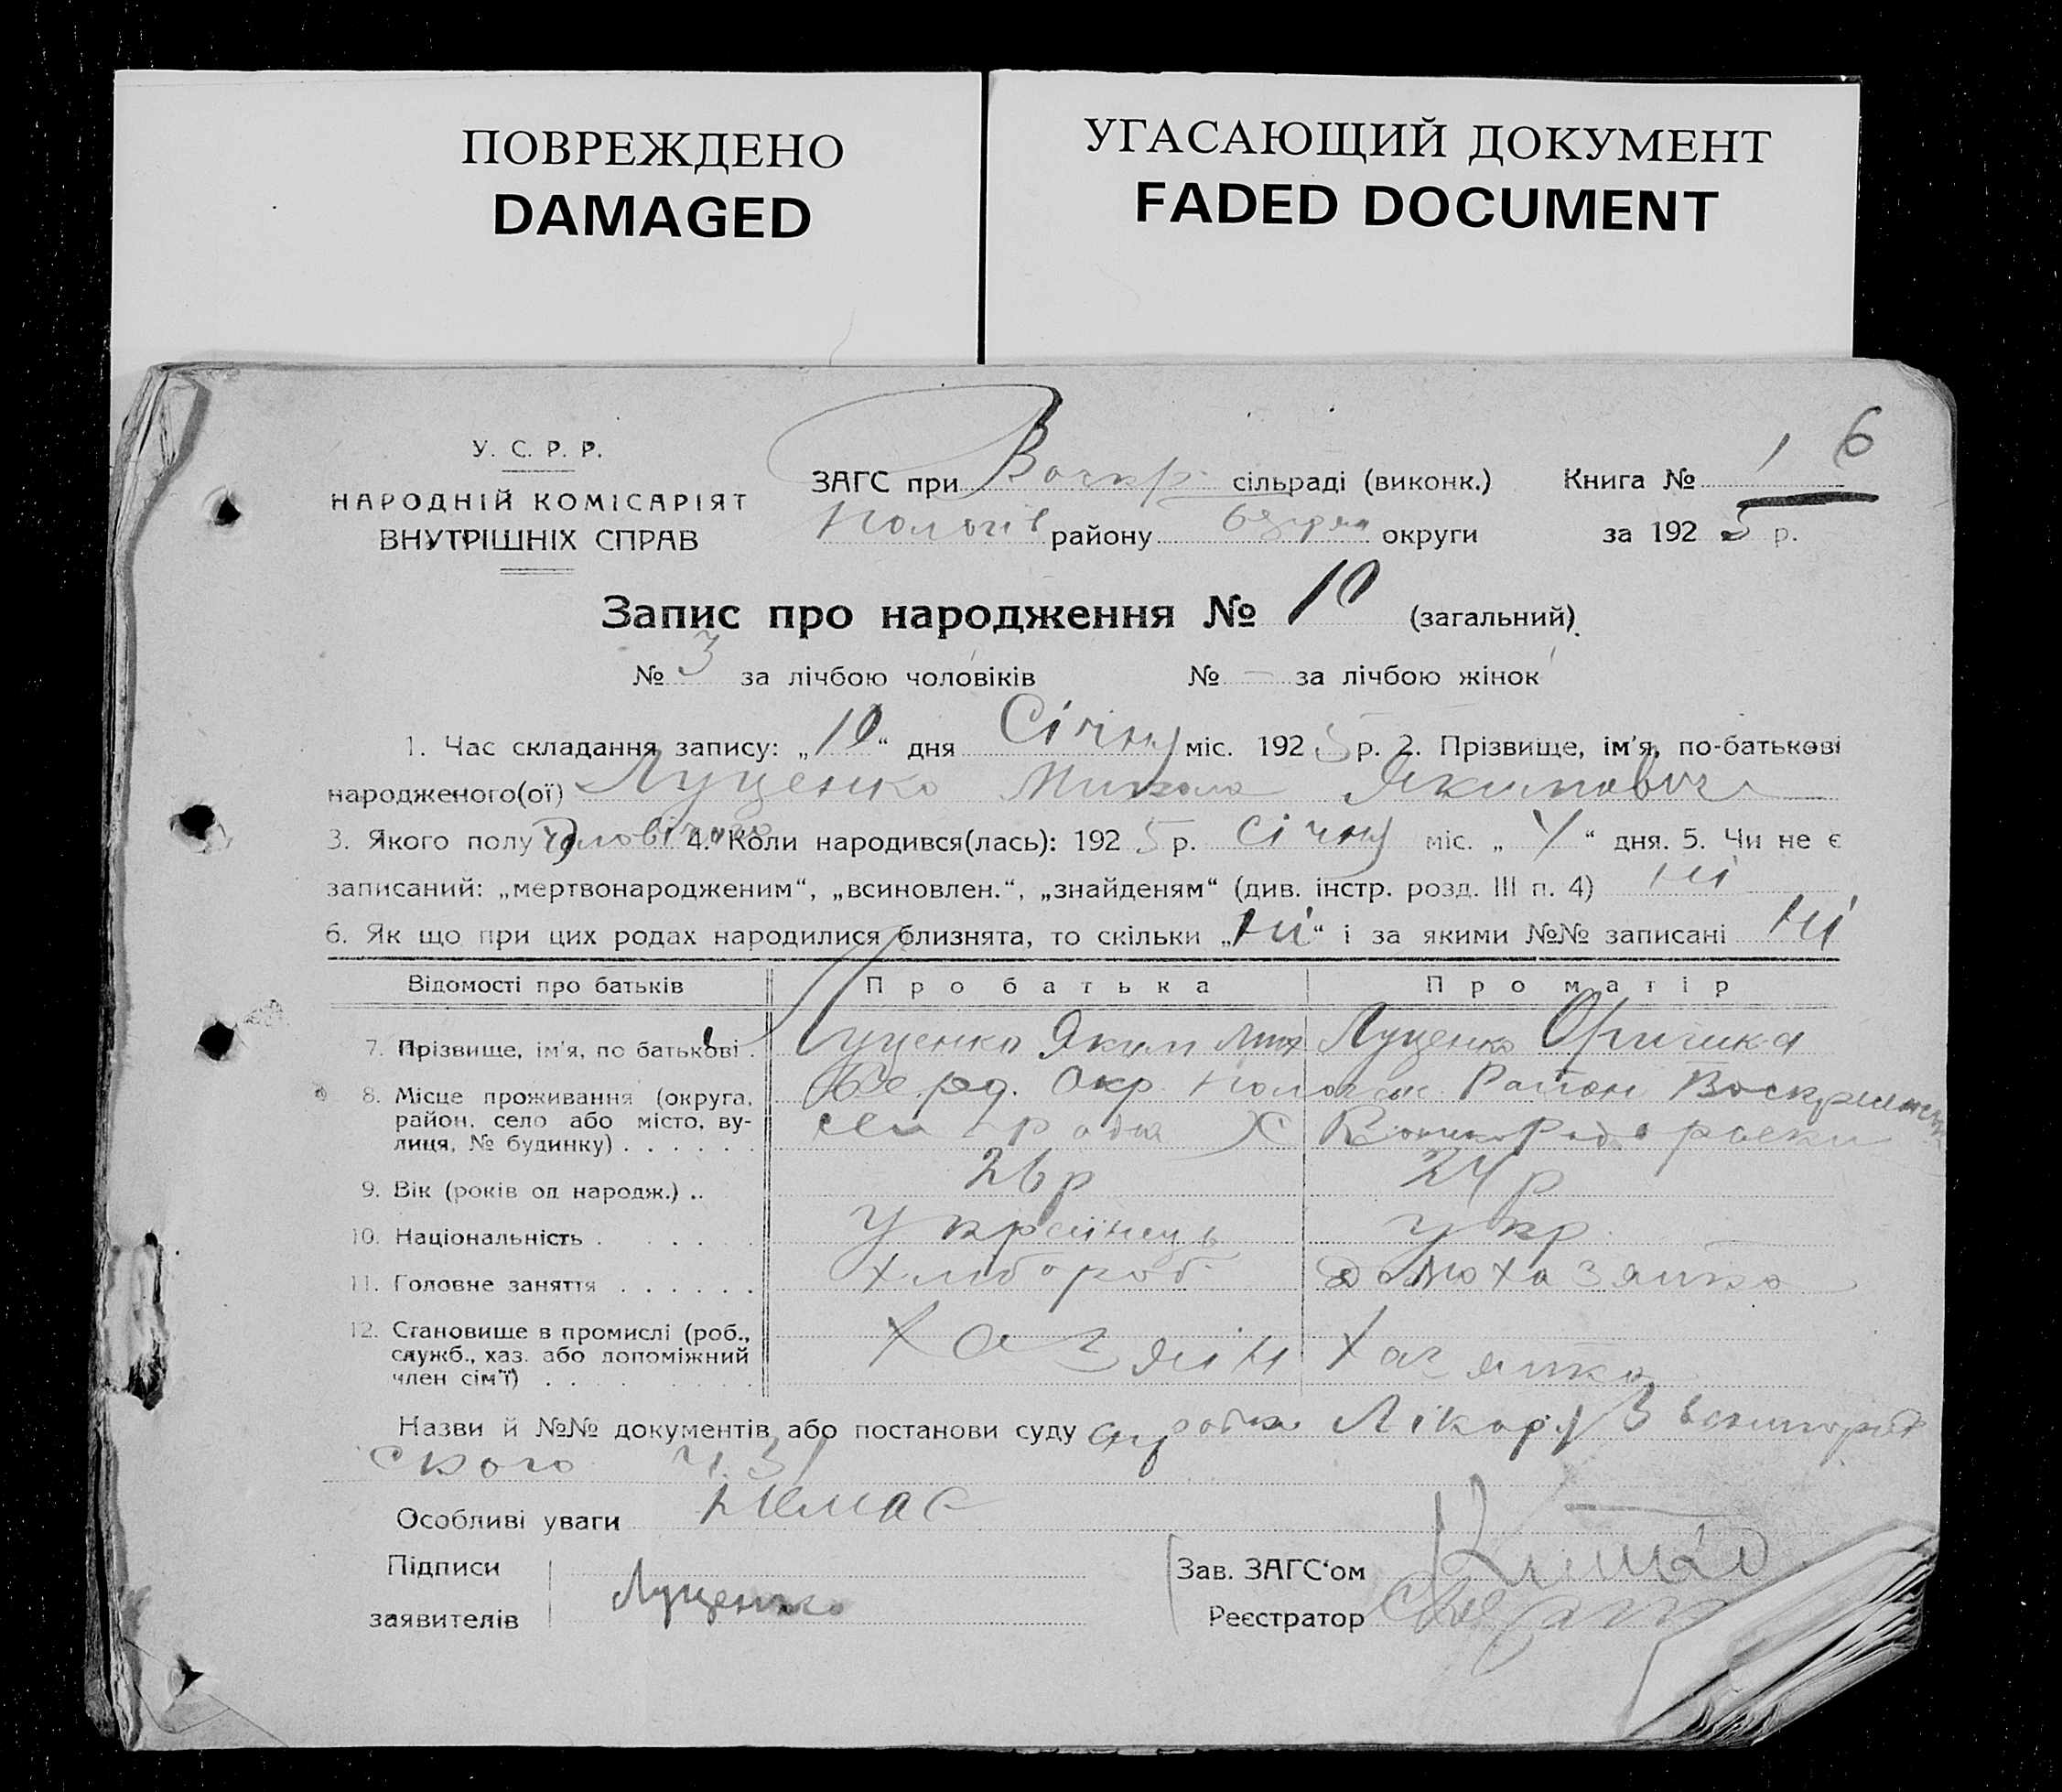 ПОВРЕЖДЕНО
DAMAGED
УГАСАЮЩИЙ ДОКУМЕНТ
FADED DOCUMENT
У. С. Р. Р.
НАРОДНІЙ КОМІСАРІЯТ
ВНУТРІШНІХ СПРАВ
ЗАГС при Воскр. сільраді (виконк.)
Пологів району округи
Книга № 1 6
за 192 5 р.
Запис про народження № 10 (загальний)
№ 3 за лічбою чоловіків № – за лічбою жінок
1. Час складання запису: „10“ дня Січня міс. 192 5 р. 2. Прізвище, ім'я, по-батькові
народженого(ої) Луценко Микола Якимович
3. Якого полу Чоловічого 4. Коли народився(лась): 192 5 р. Січня міс. „ 4 “ дня. 5. Чи не є
записаний: „мертвонародженим“, „всиновлен.“, „знайденям“ (див. інстр. розд. III п. 4) ні
6. Як що при цих родах народилися близнята, то скільки „ні“ і за якими №№ записані ні
Відомості про батьків Про батька Про матір
7. Прізвище, ім'я, по батькові . Луценко Яким Мих Луценко Оришка
8. Місце проживання (округа, район, село або місто, вулиця, № будинку) . . . . . . Берд. Окр. Район
9. Вік (років од народж.) .. 26 р 24 р
10. Національність . . . . . українець укр.
11. Головне заняття . . . . . . хлібороб домохазяйка
12. Становище в промислі (роб., служб., хаз. або допоміжний член сім'ї) . . . . . . хазяїн хазяйка
Назви й №№ документів або постанови суду Лікаря
ського ч. 31
Особливі уваги немає
Підписи
заявителів Луценко
Зав. ЗАГС'ом
Реєстратор